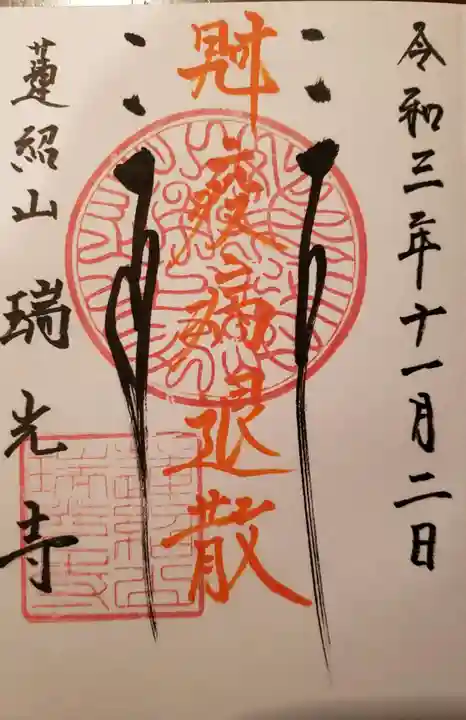 令和三年十一月二日
疫病退散
蓮紹山 瑞光寺